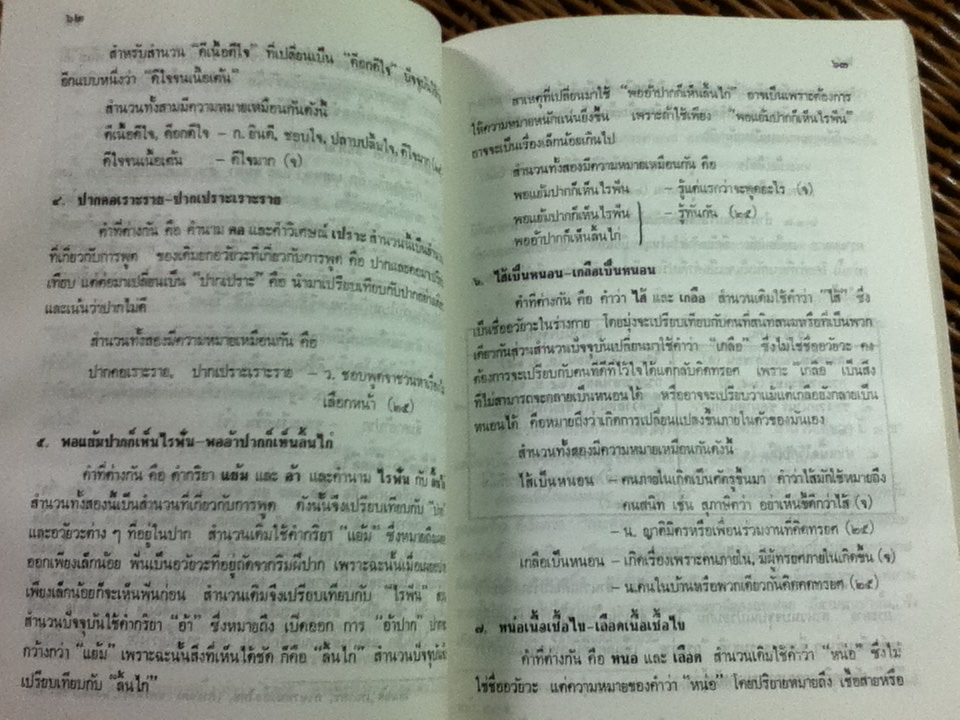 ๖๒
สำหรับสำนวน “ดีเนื้อดีใจ” ที่เปลี่ยนเป็น “ดีอกดีใจ”
อีกแบบหนึ่งว่า “ดีใจจนเนื้อเต้น”
สำนวนทั้งสามมีความหมายเหมือนกันดังนี้
ดีเนื้อดีใจ, ดีอกดีใจ – ก. ยินดี, ชอบใจ, ปลาบปลื้มใจ, ดีใจมาก
ดีใจจนเนื้อเต้น – ดีใจมาก (จ)
๔. ปากคอเราะราย-ปากเปราะเราะราย
คำที่ต่างกัน คือ คำนาม คอ และคำวิเศษณ์ เปราะ สำนวนนี้เป็น
ที่เกี่ยวกับการพูด ของเดิมยกอวัยวะที่เกี่ยวกับการพูด คือ ปากและคอมา
เทียบ แต่ต่อมาเปลี่ยนเป็น “ปากเปราะ” คือ นำมาเปรียบเทียบกับปากอย่างเดียว
และเน้นว่าปากไม่ดี
สำนวนทั้งสองมีความหมายเหมือนกัน คือ
ปากคอเราะราย, ปากเปราะเราะราย – ว. ชอบพูดจาชวนหาเรื่อง
เลือกหน้า (๒๕)
๕. พอแย้มปากก็เห็นไรฟัน-พออ้าปากก็เห็นลิ้นไก่
คำที่ต่างกัน คือ คำกริยา แย้ม และ อ้า และคำนาม ไรฟัน กับ
สำนวนทั้งสองนี้เป็นสำนวนที่เกี่ยวกับการพูด ดังนั้นจึงเปรียบเทียบกับ
และอวัยวะต่าง ๆ ที่อยู่ในปาก สำนวนเดิมใช้คำกริยา “แย้ม” ซึ่งหมายถึง
ออกเพียงเล็กน้อย ฟันเป็นอวัยวะที่อยู่ถัดจากริมฝีปาก เพราะฉะนั้นเมื่อ
เพียงเล็กน้อยก็จะเห็นฟันก่อน สำนวนเดิมจึงเปรียบเทียบกับ “ไรฟัน”
สำนวนปัจจุบันใช้คำกริยา “อ้า” ซึ่งหมายถึง เปิดออก การ “อ้าปาก”
กว้างกว่า “แย้ม” เพราะฉะนั้นสิ่งที่เห็นได้ชัด ก็คือ “ลิ้นไก่” สำนวนปัจจุบัน
เปรียบเทียบกับ “ลิ้นไก่”
๖๓
สาเหตุที่เปลี่ยนมาใช้ “พออ้าปากก็เห็นลิ้นไก่” อาจเป็นเพราะต้องการ
ให้ความหมายหนักแน่นยิ่งขึ้น เพราะถ้าใช้เพียง “พอแย้มปากก็เห็นไรฟัน”
อาจจะเป็นเรื่องเล็กน้อยเกินไป
สำนวนทั้งสองมีความหมายเหมือนกัน คือ
พอแย้มปากก็เห็นไรฟัน – รู้แต่แรกว่าจะพูดอะไร (จ)
พอแย้มปากก็เห็นไรฟัน – รู้ทันกัน (๒๕)
พออ้าปากก็เห็นลิ้นไก่
๖. ไส้เป็นหนอน-เกลือเป็นหนอน
คำที่ต่างกัน คือ คำว่า ไส้ และ เกลือ สำนวนเดิมใช้คำว่า “ไส้” ซึ่ง
เป็นชื่ออวัยวะในร่างกาย โดยมุ่งจะเปรียบเทียบกับคนที่สนิทสนมหรือที่เป็นพวก
เดียวกันส่วนสำนวนปัจจุบันเปลี่ยนมาใช้คำว่า “เกลือ” ซึ่งไม่ใช่ชื่ออวัยวะ คง
ต้องการจะเปรียบกับคนที่ดีที่ไว้ใจได้แต่กลับคิดทรยศ เพราะ เกลือ เป็นสิ่ง
ที่ไม่สามารถจะกลายเป็นหนอนได้ หรืออาจจะเปรียบว่าแม้แต่เกลือยังกลายเป็น
หนอนได้ คือหมายถึงว่าเกิดการเปลี่ยนแปลงขึ้นภายในตัวของมันเอง
สำนวนทั้งสองมีความหมายเหมือนกันดังนี้
ไส้เป็นหนอน – คนภายในเกิดเป็นศัตรูขึ้นมา คำว่าไส้มักใช้หมายถึง
คนสนิท เช่น สุภาษิตว่า อย่าเห็นขี้ดีกว่าไส้ (จ)
– น. ญาติมิตรหรือเพื่อนร่วมงานที่คิดทรยศ (๒๕)
เกลือเป็นหนอน – เกิดเรื่องเพราะคนภายใน, มีผู้ทรยศภายในเกิดขึ้น (จ)
– น.คนในบ้านหรือพวกเดียวกันคิดคดทรยศ (๒๕)
๗. หน่อเนื้อเชื้อไข-เลือดเนื้อเชื้อไข
คำที่ต่างกัน คือ หน่อ และ เลือด สำนวนเดิมใช้คำว่า “หน่อ” ซึ่งไม่
ใช่ชื่ออวัยวะ แต่ความหมายของคำว่า “หน่อ” โดยปริยายหมายถึง เชื้อสายหรือ